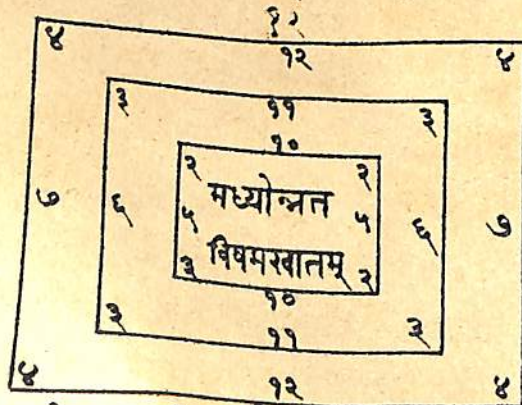 १२
४ १२ ४
३ ११ ३
१०
२ २
मध्योन्नत
७ ६ ५ ५ ६ ७
विषमखातम्
३ २
१०
३ ११ ३
४ १२ ४